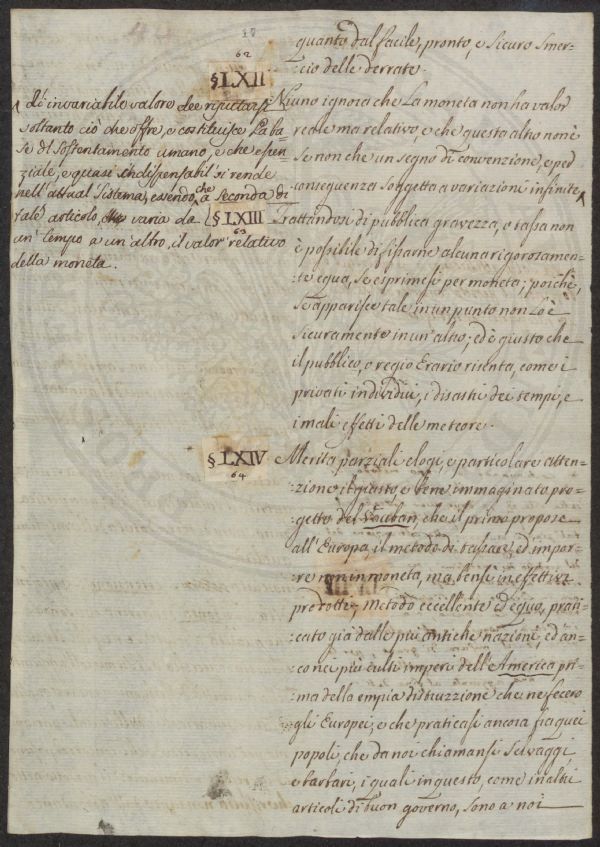 quanto dal facile, pronto, e sicuro smer=
cio delle derrate.
62
§ LXII
Niuno ignora che la moneta non ha valor
reale ma relativo, e che questo altro non è
se non che un segno di convenzione, e per
conseguenza soggetta a variazioni infinite ^
^ d'invariabile valore dee riputarsi
soltanto ciò che offre, e costituisce la ba=
se di sostentamento umano, e che essen=
ziale, e quasi indispensabil si rende
nell'attual sistema; essendo, che a seconda di
tale articolo, varia da
un tempo a un altro, il valor relativo
della moneta.
§ LXIII
63
Trattandosi di pubblica gravezza, o tassa non
è possibile di fissarne alcuna rigorosamen=
te equa, se esprimesi per moneta; poichè,
se apparisce tale in un punto non lo è
sicuramente in un altro; ed è giusto che
il pubblico, o regio Erario risenta, come i
privati individui, i disastri dei tempi, e
i mali effetti delle meteore.
§ LXIV
64
Merita parziali elogi, e particolare atten=
:zione il giusto, e bene immaginato pro=
:getto del Vauban, che il primo propose
all'Europa, il metodo di tassare, ed impor=
:re non in moneta, ma bensì in effettivi
prodotti; Metodo eccellente ed equo, prati=
:cato già dalle più antiche nazioni, ed an=
:co nei più culti imperi dell'America pri=
:ma della empia distruzzione che ne fecero
gli Europei; e che praticasi ancora fra quei
popoli, che da noi chiamansi selvaggi,
e barbari, i quali in questo, come in altri
articoli di buon governo, sono a noi